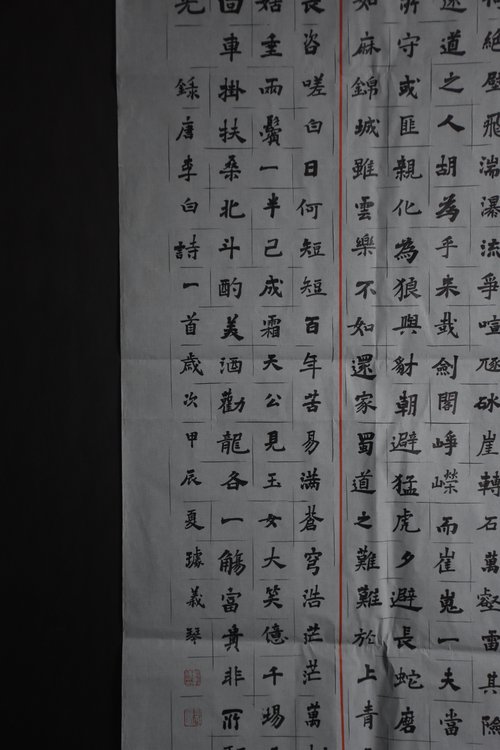 絕壁飛湍瀑流爭喧豗砯崖轉石萬壑雷其險
遠道之人胡為乎来哉劍閣崢嶸而崔嵬一夫當
所守或匪親化為狼與豺朝避猛虎夕避長蛇磨
如麻錦城雖雲樂不如還家蜀道之難難於上青
長咨嗟白日何短短百年苦易滿蒼穹浩茫茫萬
姑垂兩鬢一半已成霜天公見玉女大笑億千場
回車掛扶桑北斗酌美酒勸龍各一觴富貴非所
光錄唐李白詩一首歲次甲辰夏璩義琴